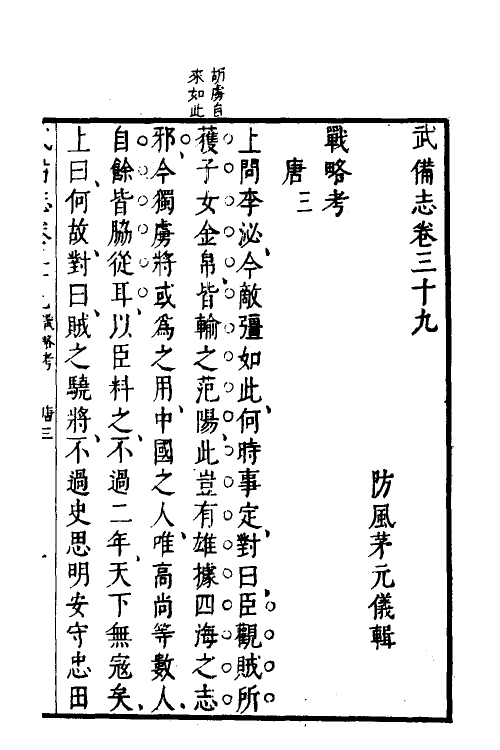 武備志卷三十九
防風茅元儀輯
戰略考
唐三
胡虜自
來如此
上問李泌今敵彊如此何時事定對曰臣觀賊所
獲子女金帛皆輸之范陽此豈有雄據四海之志
邪今獨虜將或爲之用中國之人唯高尚等數人
自餘皆脇從耳以臣料之不過二年天下無寇矣
上曰何故對曰賊之驍將不過史思明安守忠田
戰略考 唐三 一